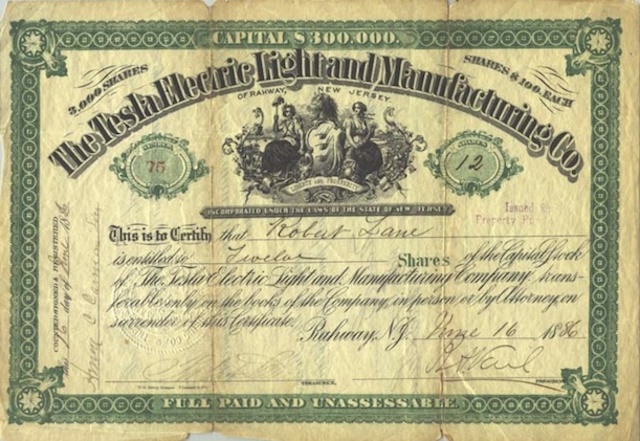 CAPITAL $300,000.
3,000 SHARES
SHARES $100. EACH
The Tesla Electric Light and Manufacturing Co.
OF RAHWAY, NEW JERSEY.
75
12
LIBERTY AND PROSPERITY
INCORPORATED UNDER THE LAWS OF THE STATE OF NEW JERSEY
Issued
Property
This is to Certify that Robert Lane
is entitled to Twelve Shares of the Capital Stock
of The Tesla Electric Light and Manufacturing Company trans-
ferable only on the books of the Company in person or by Attorney on
surrender of this Certificate.
Rahway, N.J. June 16 1886
TREASURER.
PRESIDENT
FULL PAID AND UNASSESSABLE.
COUNTERSIGNED & REGISTERED
this 16 day of June 1886